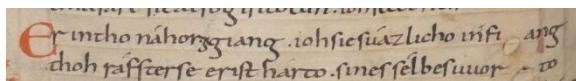 Er intho náhor giang . ioh sie suázlicho intfiang
thoh ráfster se erist hárto . sines sélbes uuor to